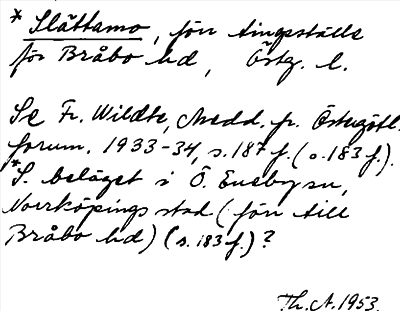 * Slättamo, förr tingsställe
för Bråbo hd, Östg. l.
Se Fr. Wildte, Medd. fr. Östergötl.
forum. 1933-34, s. 187 f. (o. 183 f.).
*S. beläget i Ö. Eneby sn,
Norrköpings stad (förr till
Bråbo hd) (s. 183 f.)?
Th. A. 1953.